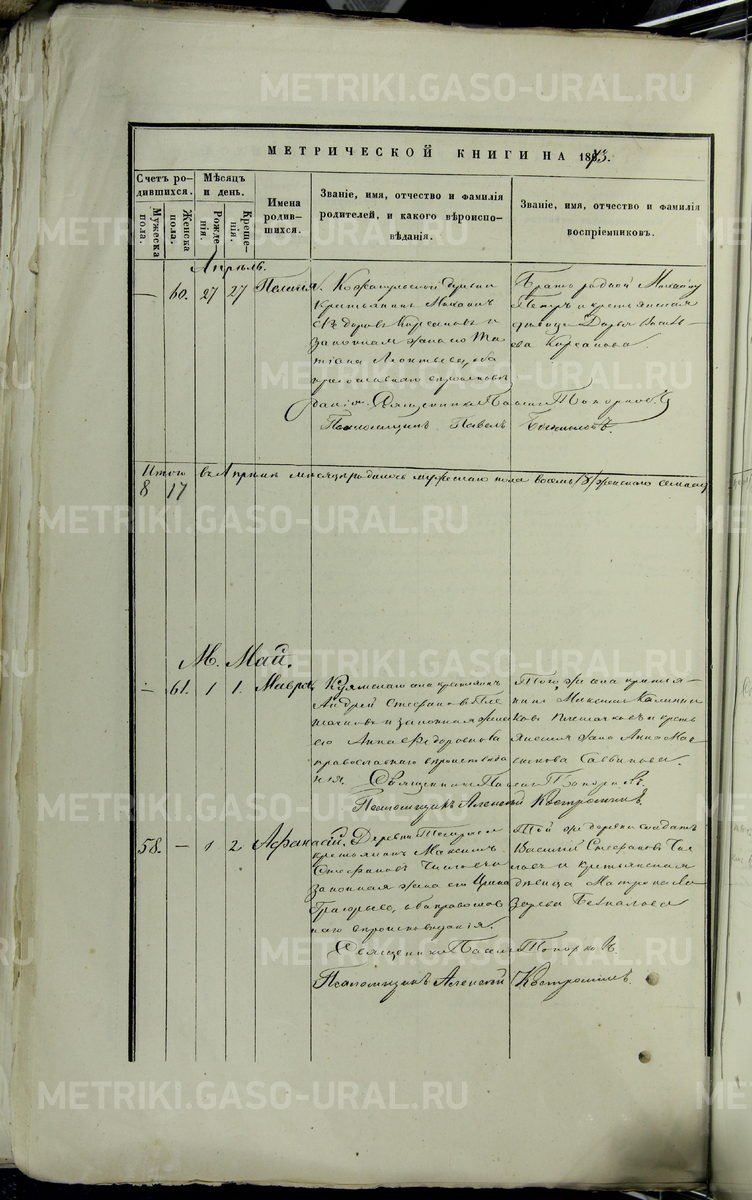 МЕТРИЧЕСКОЙ КНИГИ НА 1873.
Счетъ родившихся.
Мужеска пола.
Женска пола.
Мѣсяцъ и день.
Рожденія.
Крещенія.
Имена родившихся.
Званіе, имя, отчество и фамилія родителей, и какого вѣроисповѣданія.
Званіе, имя, отчество и фамилія воспріемниковъ.
Апрѣль.
— 60. 27 27 Пелагія.
деревни
крестьянинъ
Корсаковъ и
законная жена его Та-
тіана Леонтьева, оба
православнаго вѣроисповѣ-
данія. Священникъ Топорковъ
Псаломщикъ Павелъ
Братъ родной
Петръ и крестьянская
дѣвица Дарья Василь-
ева Корсакова.
Итого въ Апрѣлѣ мѣсяцѣ родилось мужескаго пола восемь 8, женскаго
8 17
М. Май.
— 61. 1 1. Мавра,
крестьянинъ
Андрей Стефановъ Пле-
и законная жена
его Анна Ѳедоровна, оба
православнаго вѣроисповѣда-
нія. Священникъ Топорковъ.
Псаломщикъ Алексѣй Костроминъ.
Того же села крестья-
нинъ Максимъ Калинни-
ковъ и кресть-
янская жена Анна Мак-
симова
58. — 1 2 Афанасій.
Деревни
крестьянинъ Максимъ
Стефановъ
законная жена его Ирина
Григорьева, оба православ-
наго вѣроисповѣданія.
Священникъ Топорковъ.
Псаломщикъ Алексѣй Костроминъ.
Той же деревни солдатъ
Василій Стефановъ
и крестьянская
дѣвица Матрона Ла-
зарева Безпалова
METRIKI.GASO-URAL.RU